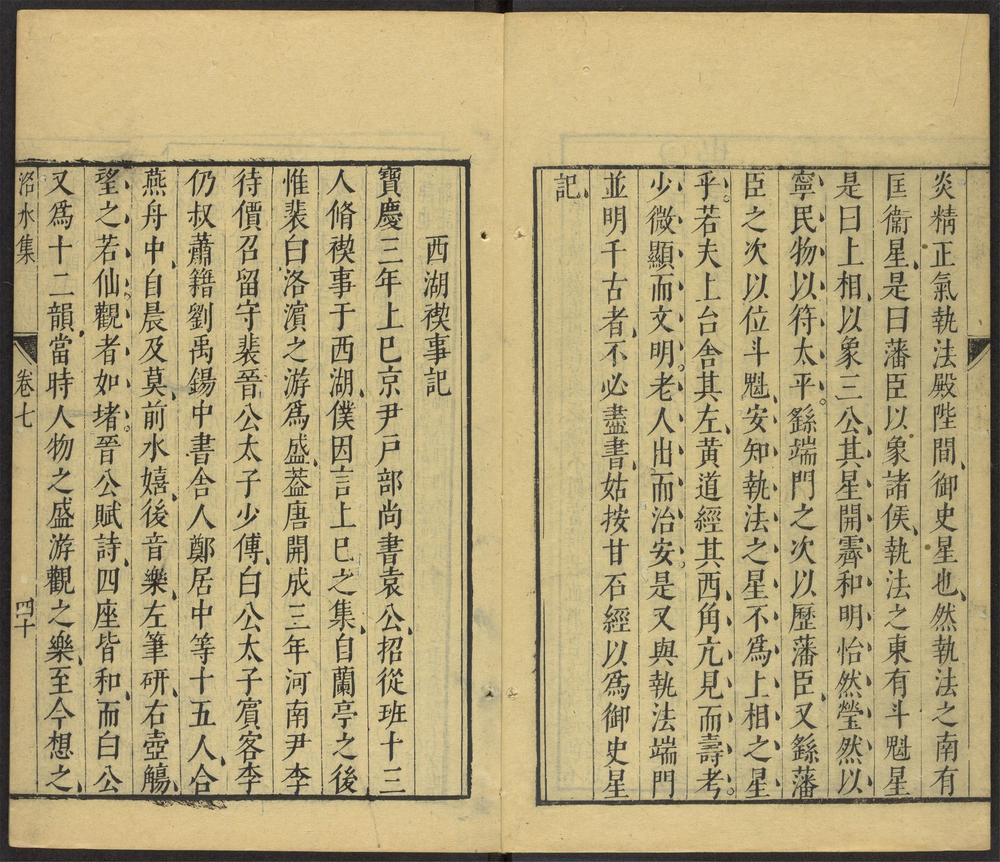 炎精正氣執法殿陛間御史星也然執法之南有
匡衞星是曰藩臣以象諸侯執法之東有斗魁星
是曰上相以象三公其星開霽和明怡然瑩然以
寧民物以符太平繇端門之次以歷藩臣又繇藩
臣之次以位斗魁安知執法之星不爲上相之星
乎若夫上台舍其左黄道經其西角亢見而壽考
少微顯而文明老人出而治安是又與執法端門
並明千古者不必盡書姑按甘石經以爲御史星
記
西湖禊事記
寶慶三年上巳京尹戸部尚書袁公招從班十三
人脩禊事于西湖僕因言上巳之集自蘭亭之後
惟裴白洛濱之游爲盛葢唐開成三年河南尹李
待價召留守裴晉公太子少傅白公太子賓客李
仍叔蕭籍劉禹錫中書舍人鄭居中等十五人合
燕舟中自晨及莫前水嬉後音樂左筆研右壺觴
望之若仙觀者如堵晉公賦詩四座皆和而白公
又爲十二韻當時人物之盛游觀之樂至今想之
洺水集 卷七 四十